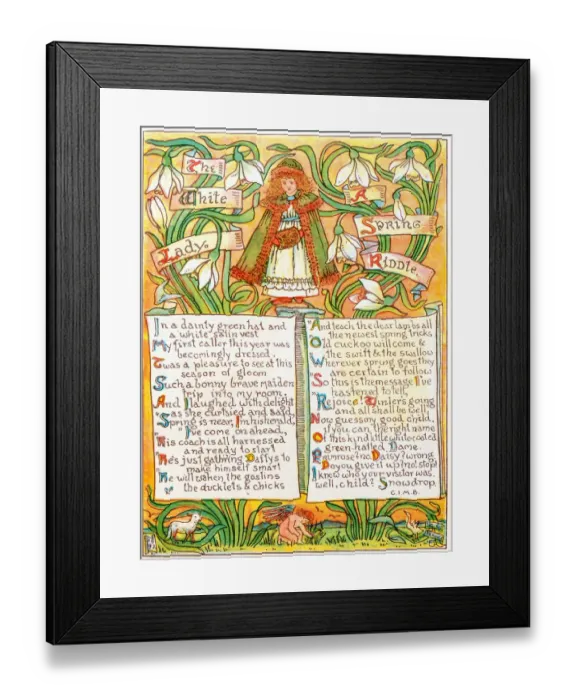 The
White
Lady.
A
Spring
Riddle.
In a dainty green hat and
a white satin vest
My first caller this year was
becomingly dressed.
'Twas a pleasure to see at this
season of gloom
Such a bonny brave maiden
trip into my room,
And I laughed with delight
as she curtsied and said,
"Spring is near, I'm his herald,
I've come on ahead,
"His coach is all harnessed
and ready to start
"He's just gathring Daffys to
make himself smart
"He will waken the goslins
the ducklets & chicks
"And teach the dear lambs all
the newest spring tricks
Old cuckoo will come &
the swift & the swallow
Wherever spring goes they
are certain to follow
So this is the message I've
hastened to tell,
Rejoice! Winter's going
and all shall be well."
Now guessing good child,
if you can, the right name
Of this kind little white cloak'd
green-hatted Dame.
Primrose? no Daisy? wrong
Do you give it up? no! stop!
I knew who your visitor was,
well, child? Snowdrop
C.I.M.B.